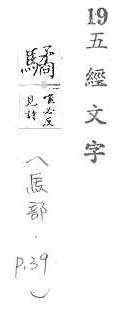 19 五經文字
驈
必反
見詩
（馬部．P.39）